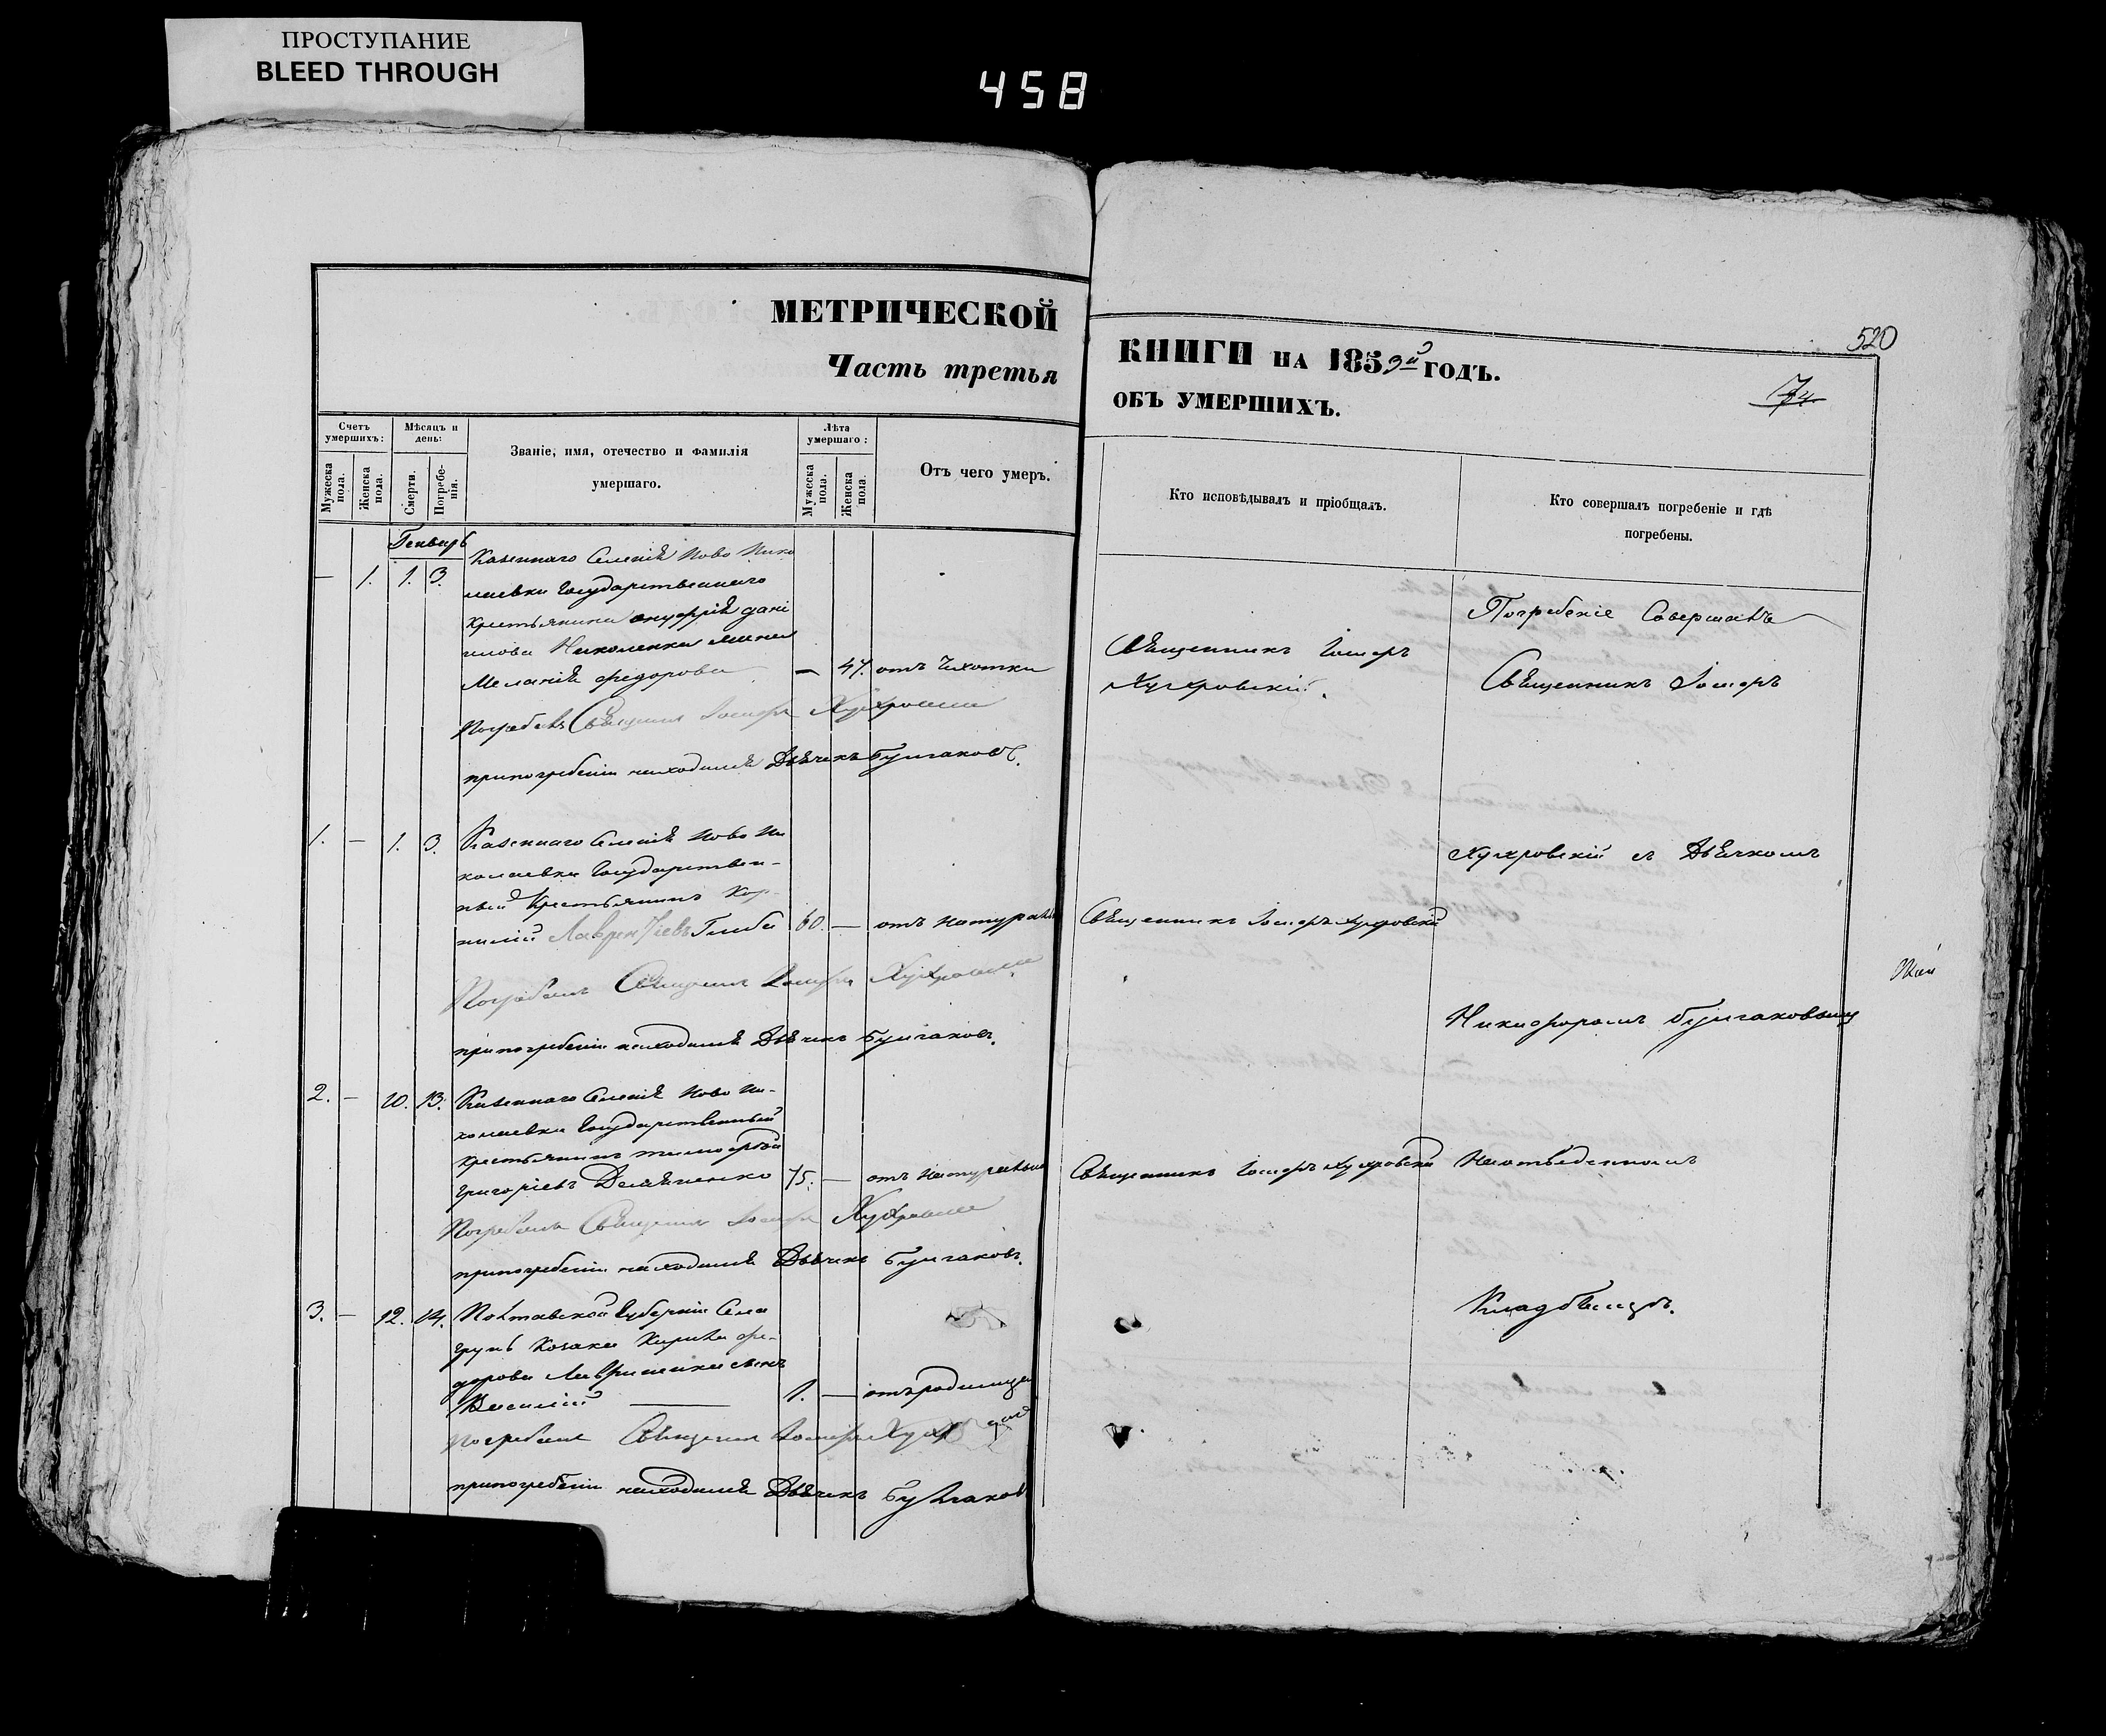 ПРОСТУПАНИЕ
BLEED THROUGH
458
МЕТРИЧЕСКОЙ
Часть третья
КНИГИ НА 1853й ГОДЪ.
ОБЪ УМЕРШИХЪ.
520
74
Счетъ умершихъ:
Мужеска пола.
Женска пола.
Мѣсяцъ и день:
Смерти.
Погребенія.
Званіе, имя, отечество и фамилія
умершаго.
Лѣта умершаго:
Мужеска пола.
Женска пола.
Отъ чего умеръ.
Кто исповѣдывалъ и пріобщалъ.
Кто совершалъ погребеніе и гдѣ
погребены.
Генварь
— 1. 1. 3. Казеннаго Селенія Ново Нико
лаевки Государственнаго
крестьянина Онуфрія Дани
илова Николенка жена
Меланія Федорова — 47. отъ Чихотки
Священникъ Іосифъ
Погребеніе Совершалъ
Священникъ Іосифъ
Погребалъ Священник Іосифъ
при погребеніи находился Дьячекъ Булгаковъ.
1. — 1. 3. Казеннаго Селенія Ново Ни
колаевки Государствен-
ный Крестьянинъ Кор-
нилій Лаврентіевъ Глиба 60. — отъ натуральн
Священникъ Іосифъ
съ Дьячкомъ
Погребалъ Священник Іосифъ
при погребеніи находился Дьячекъ Булгаковъ.
Никифоромъ Булгаковымъ
2. — 10. 13. Казеннаго Селенія Ново Ни-
колаевки Государственный
крестьянинъ Тимофей
Григоріевъ 75. — отъ натуральн
Священникъ Іосифъ
На отведенномъ
Погребалъ Священник Іосифъ
при погребеніи находился Дьячекъ Булгаковъ.
3. — 12. 14. Полтавской Губерніи Села
Грунь Козака Кирила Фе-
дорова сынъ
Василій 1. — отъ родимца
Кладбищѣ.
Погребалъ Священник Іосифъ
при погребеніи находился Дьячекъ Булгаков